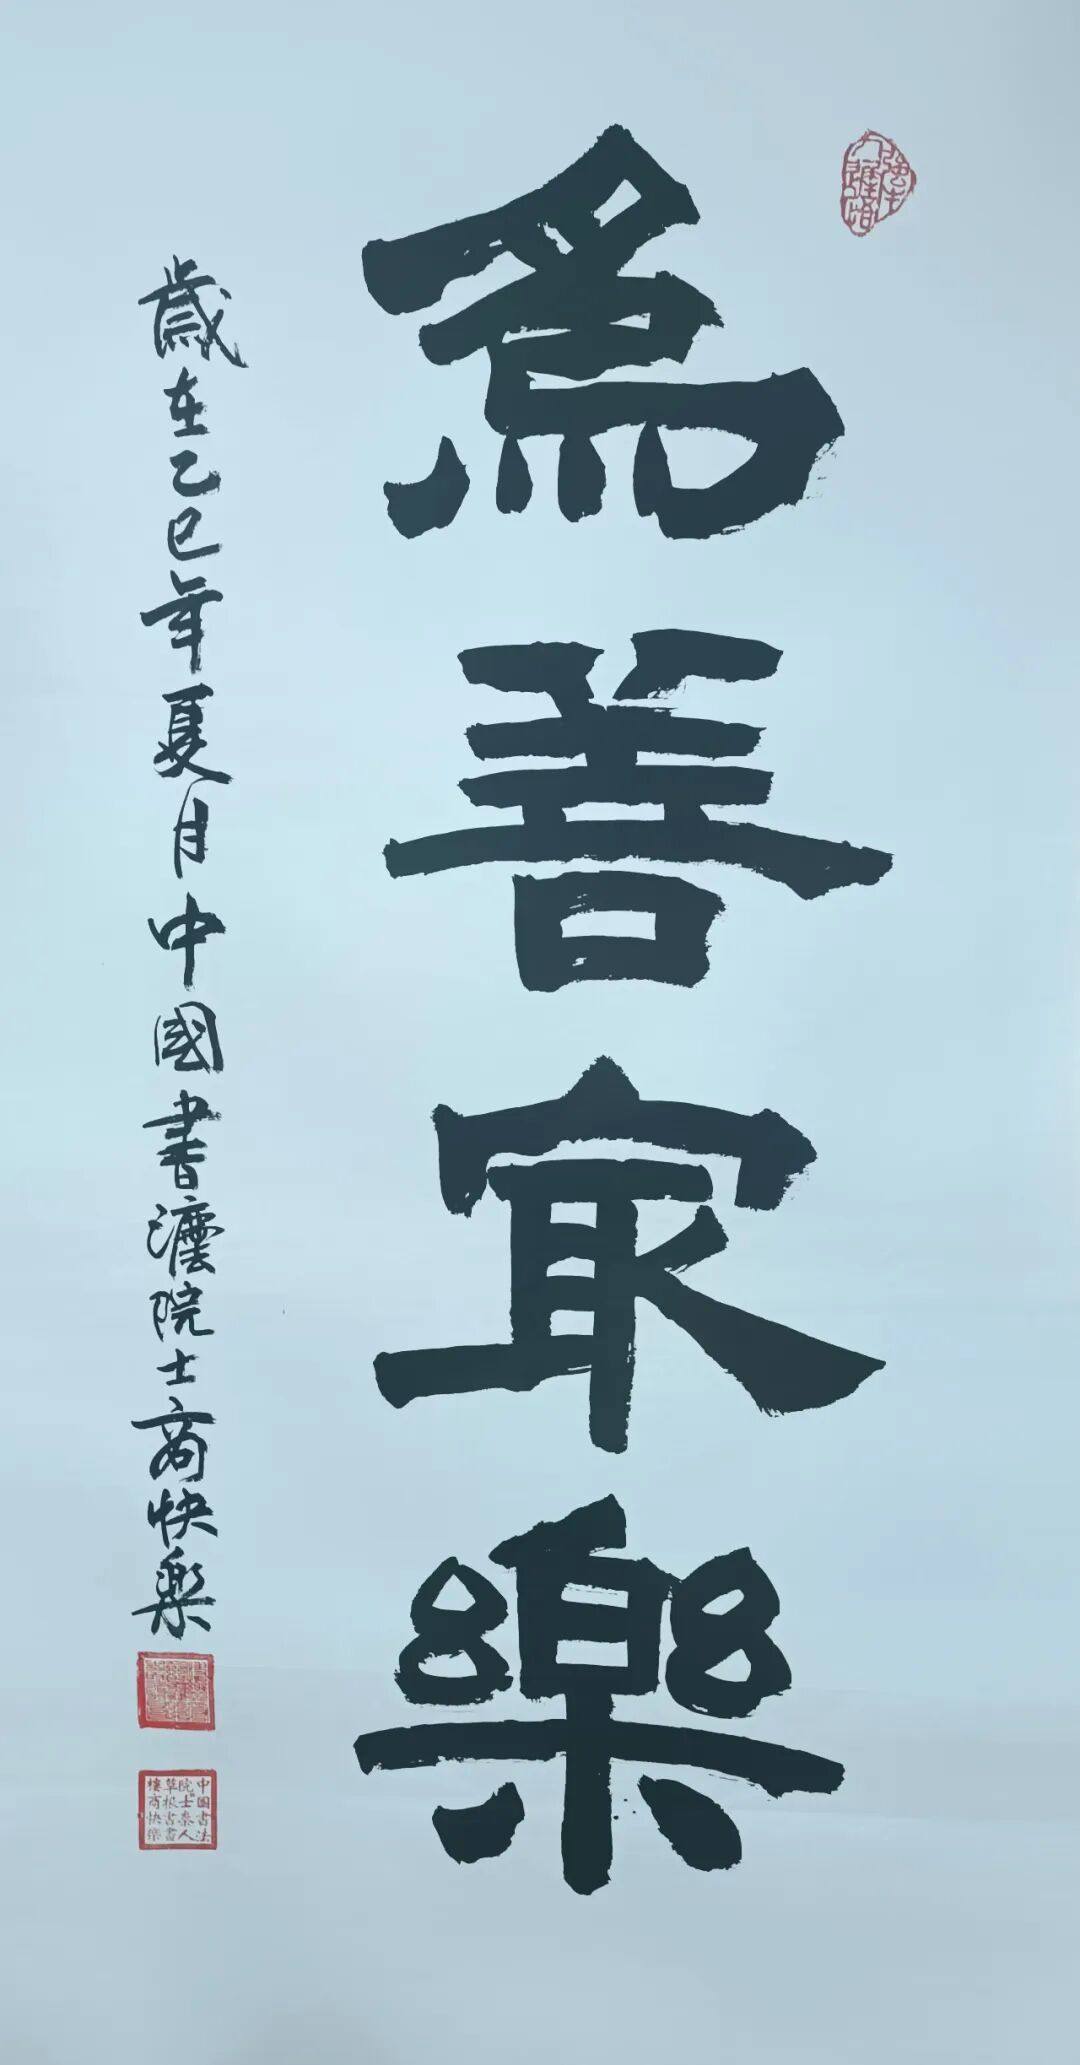 為善㝡樂
歲在乙巳年夏月中國書灋院士商快樂
中国書法
院士秦人
草根書畫
樓商快樂